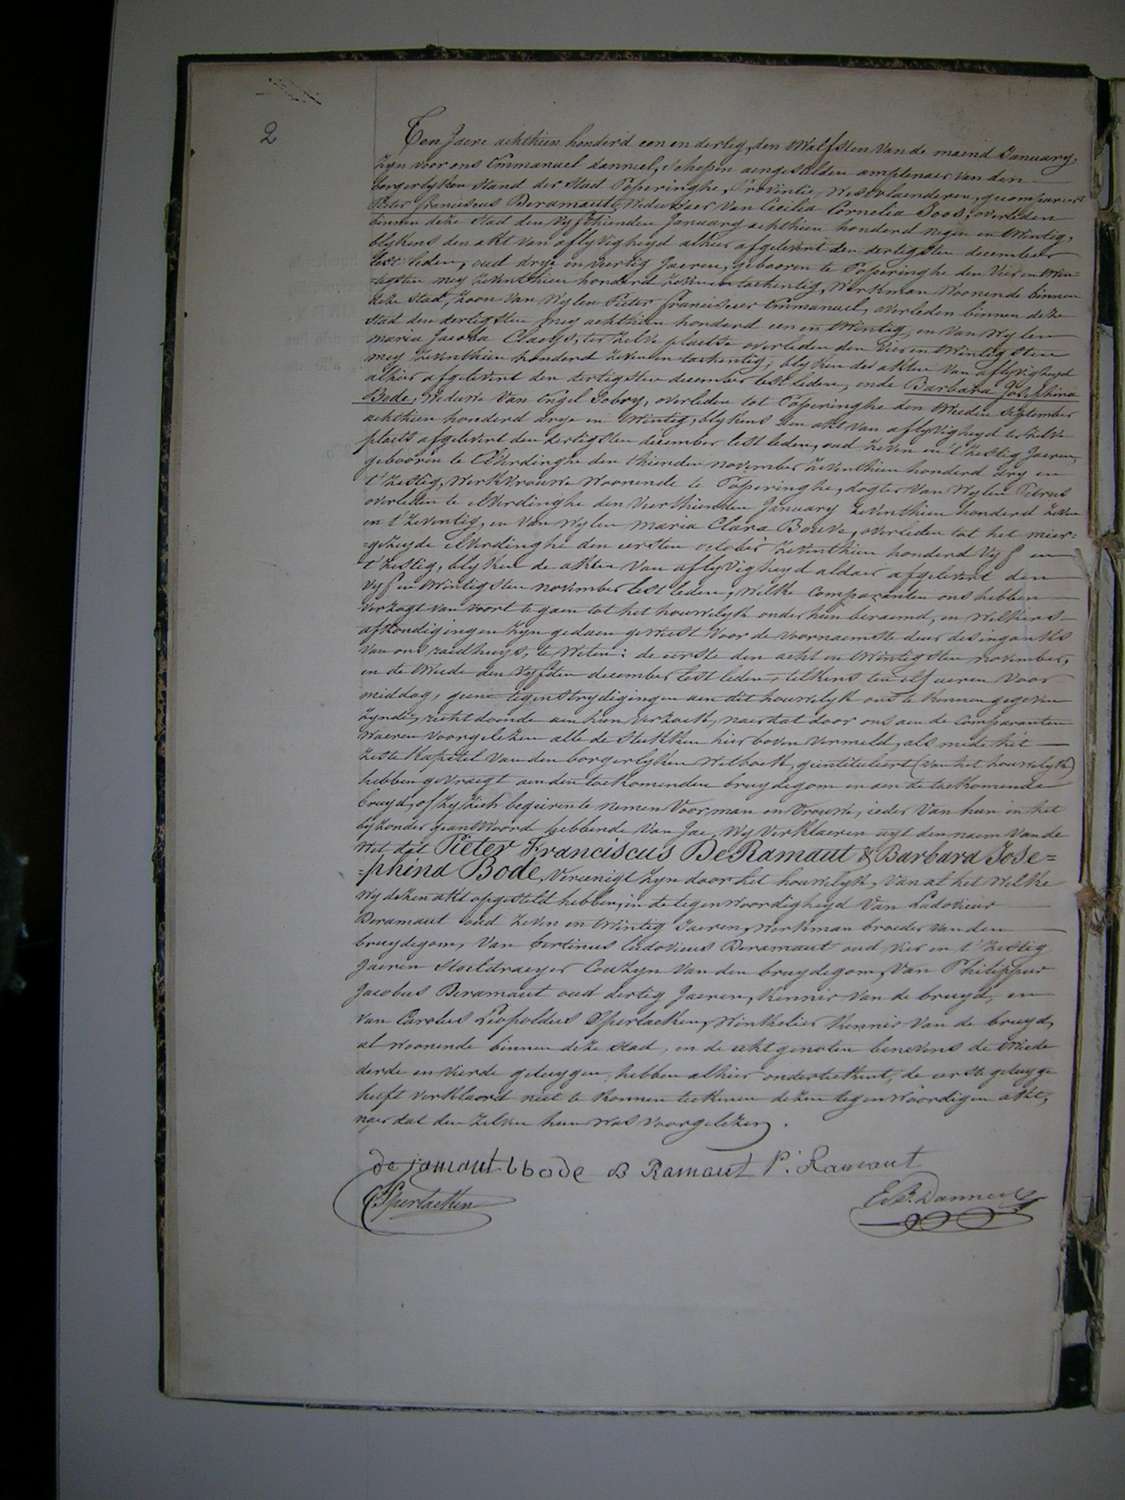 2
Ten Jaere achthien honderd een en dertig, den Twelfsten van de maend January,
zyn voor ons Emmanuel Danneel, schepen aengestelden amptenaer van den
borgerlyken stand der stad Poperinghe, Provintie Westvlaenderen, gecompareert
Pieter Franciscus Deramaut, weduwaer van Cecilia Cornelia Soos, overleden
binnen deze stad den vyfthienden January achthien honderd negen en twintig,
blykens den akt van aflyvigheyd alhier afgelevert den dertigsten december
lest leden, oud drye en veertig Jaeren, gebooren te Poperinghe den vier en twin-
tigsten mey zeventhien honderd zeven en tachentig, werkman woonende binnen
deze stad, zoon van wylen Pieter Franciscus Emmanuel, overleden binnen deze
stad den dertigsten mey achthien honderd een en twintig, en van wylen
Maria Jacoba Claeys, ter zelve plaetse overleden den vier en twintigsten
mey zeventhien honderd zeven en tachentig, blyken de akten van aflyvigheyd
alhier afgelevert den dertigsten december lest leden, ende Barbara Josephina
Bode, weduwe van Engel Dobry, overleden tot Poperinghe den tweeden september
achthien honderd drye en twintig, blykens den akt van aflyvigheyd ter zelve
plaets afgelevert den dertigsten december lest leden, oud zeven en t'zestig Jaeren,
gebooren te Elverdinghe den thienden november zeventhien honderd dry en
t'zestig, werkvrouwe woonende te Poperinghe, dogter van wylen Petrus
overleden te Elverdinghe den vierthienden January zeventhien honderd zeven
en t'zeventig, en van wylen Maria Clara Bouve, overleden tot het meer-
-gezeyde Elverdinghe den eersten october zeventhien honderd vyf en
t'zestig, blyken de akten van aflyvigheyd aldaer afgelevert den
vyf en twintigsten november lest leden, welke comparanten ons hebben
verzogt van voort te gaen tot het houwelyk onder hun beraemd, en welkers
afkondigingen zyn gedaen geweest voor de voornaemste deur des ingangs
van ons raedhuys, te weten: de eerste den acht en twintigsten november,
en de tweede den vyfden december lest leden, telkens ten elf ueren voor
middag, geene tegenstrydigingen aen dit houwelyk ons te kennen gegeven
zynde, recht doende aen hun verzoek, naer dat door ons aen de comparanten
waeren voorgelezen alle de stukken hier boven vermeld, als mede het
zeste kapitel van den borgerlyken wetboek, geintituleert (van het houwelyk)
hebben gevraegt aen den toekomenden bruydegom en aen de toekomende
bruyd, of zy zich begeiren te nemen voor man en vrouwe, ieder van hun in het
byzonder geantwoord hebbende van Jae, wy verklaeren uyt den naem van de
wet dat Pieter Franciscus De Ramaut & Barbara Jose=
=phina Bode, vereenigt zyn door het houwelyk, van al het welke
wy dezen akt opgesteld hebben, in de tegenwoordigheyd van Ludovicus
Deramaut oud zeven en twintig Jaeren, werkman broeder van den
bruydegom, van Bertinus Ludovicus Deramaut oud vier en t'zestig
Jaeren stoeldraeyer Cousyn van den bruydegom, van Philippus
Jacobus Deramaut oud dertig Jaeren, kennis van de bruyd, en
van Carolus Leopoldus Sperlaeken, winkelier kennis van de bruyd,
al woonende binnen deze stad, en de echtgenoten benevens de tweede
derde en vierde getuygen, hebben alhier onderteekent, de eerste getuyge
heeft verklaerd niet te konnen teekenen dezen tegenwoordigen akt,
naer dat den zelven hun was voorgelezen.
de ramaut b bode B Ramaut P. Ramaut
Sperlaeken E. Danneel